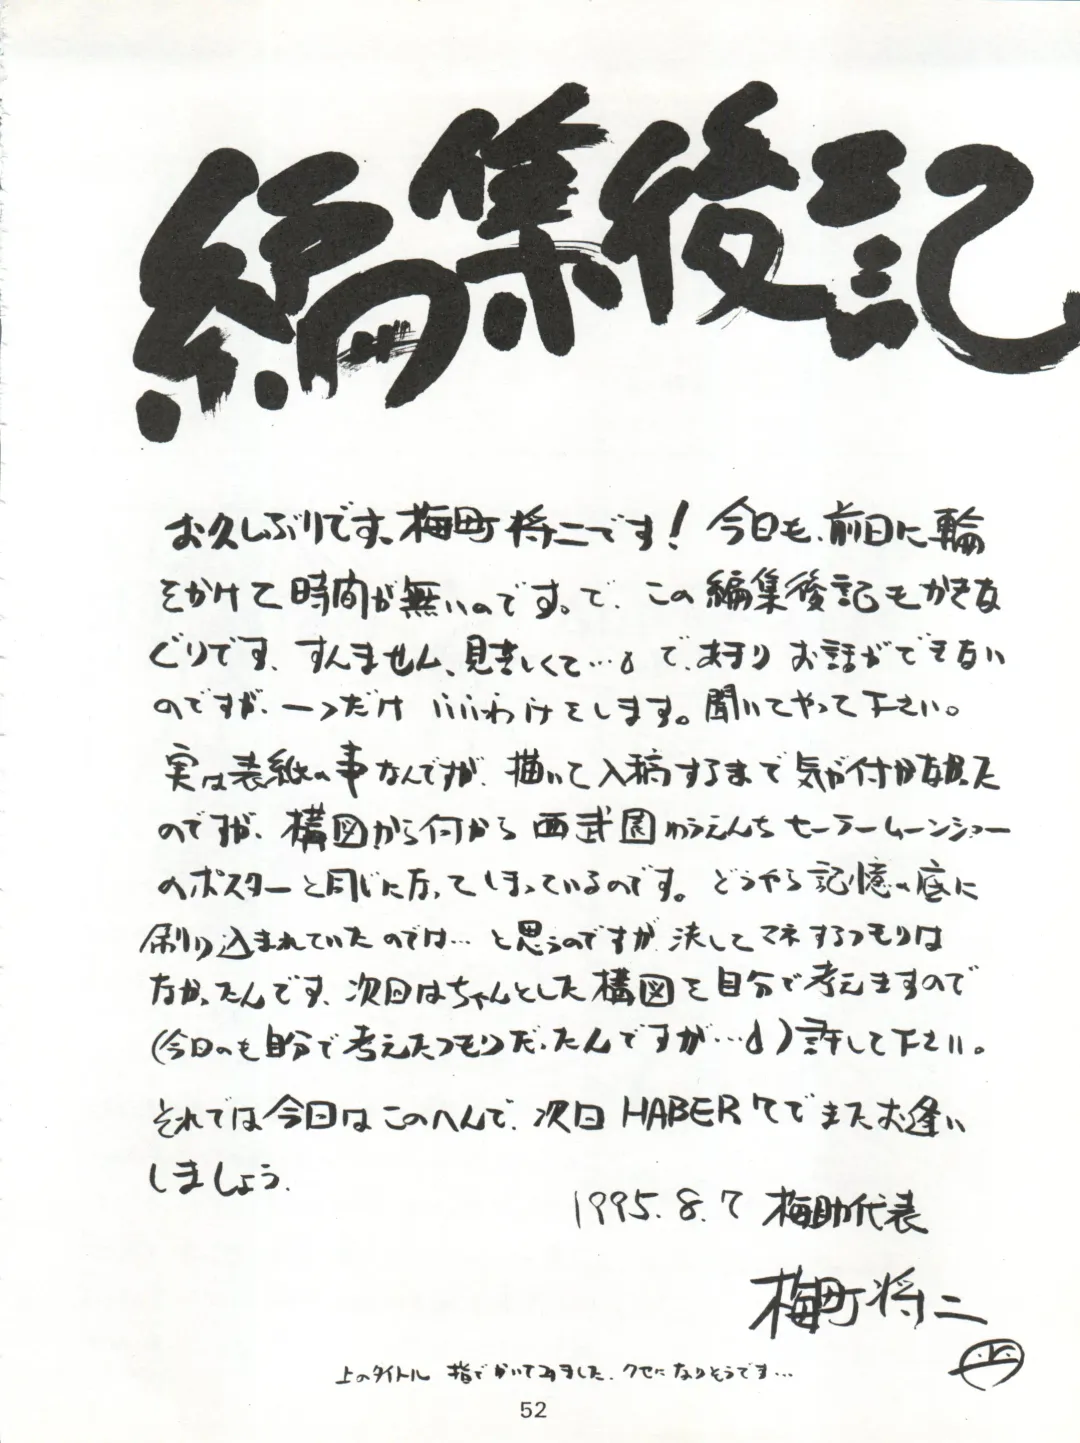 編集後記
お久しぶりです、梅町将二です!今回も、前回に輪
をかけて時間が無いのです。で、この編集後記もかきな
ぐりです、すんません、見苦しくて…。で、あまりお話ができない
のですが、一つだけいいわけをします。聞いてやって下さい。
実は表紙の事なんですが、描いて入稿するまで気が付かなかった
のですが、構図から何から西武園ゆうえんちセーラームーンショー
のポスターと同じになってしまっているのです。どうやら記憶の底に
刷り込まれていたのでは…と思うのですが決してマネするつもりは
なかったんです、次回はちゃんとした構図を自分で考えますので
(今回のも自分で考えたつもりだったんですが…)許して下さい。
それでは今回はこのへんで、次回HABER7でまたお逢い
しましょう。
1995.8.7 梅助代表
梅町将二
上のタイトル 指でかいてみました、クセになりそうです…
52